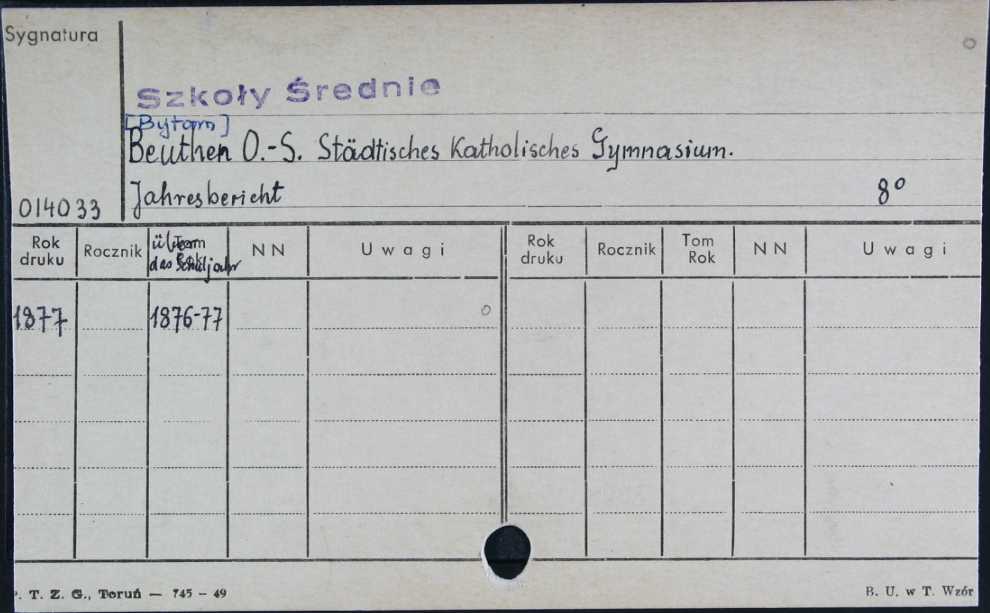 Sygnatura
Szkoły Średnie
[Bytom]
Beuthen O.-S. Städtisches Katholisches Gymnasium.
014033 Jahresbericht 8°
Rok druku Rocznik über das Schuljahr Tom Rok NN Uwagi Rok druku Rocznik Tom Rok NN Uwagi
1877 1876-77
. T. Z. G., Toruń — 745 - 49 B. U. w T. Wzór